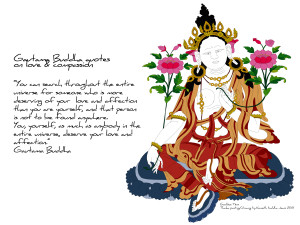 Gautama Buddha quotes
on love & compassion
"You can search throughout the entire
universe for someone who is more
deserving of your love and affection
than you are yourself, and that person
is not to be found anywhere.
You, yourself, as much as anybody in the
entire universe, deserve your love and
affection."
Gautama Buddha